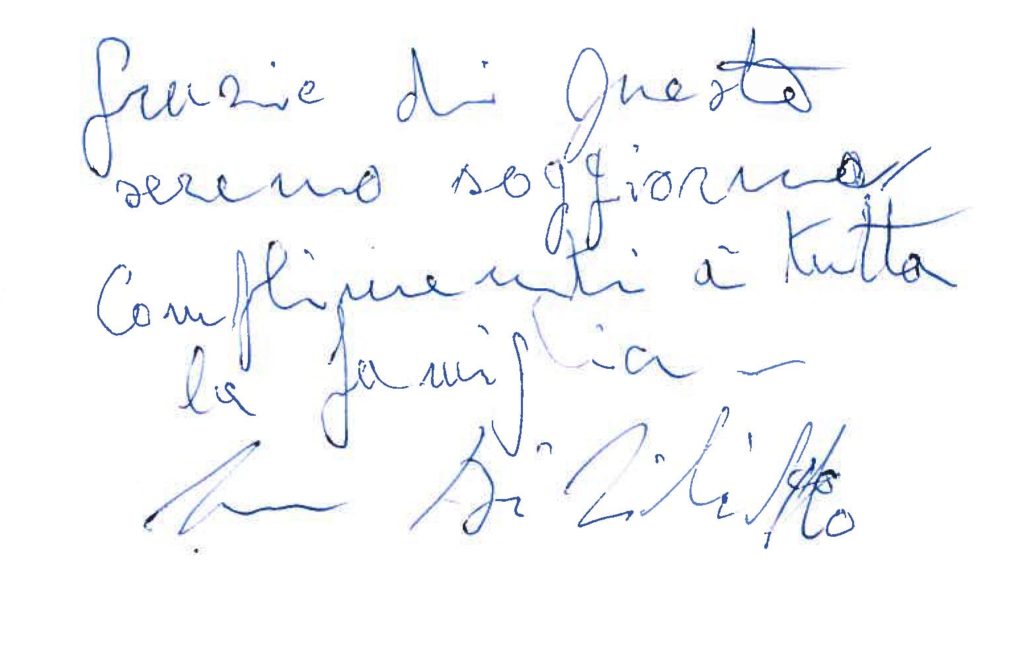 Grazie di Questo
sereno soggiorno
Complimenti a tutta
la famiglia -